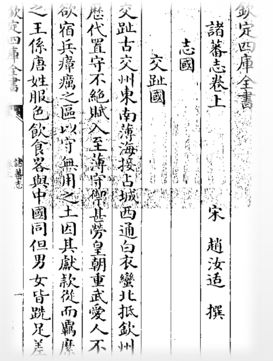 欽定四庫全書
諸蕃志卷上
宋 趙汝适 撰
志國
交趾國
交趾古交州東南薄海接占城西通白衣蠻北抵欽州
歷代置守不絶賦入至薄守禦甚勞皇朝重武愛人不
欲宿兵瘴癘之區以守無用之土因其獻款從而羈縻
之王係唐姓服色飲食畧與中國同但男女皆跣足差
欽定四庫全書
諸蕃志
一